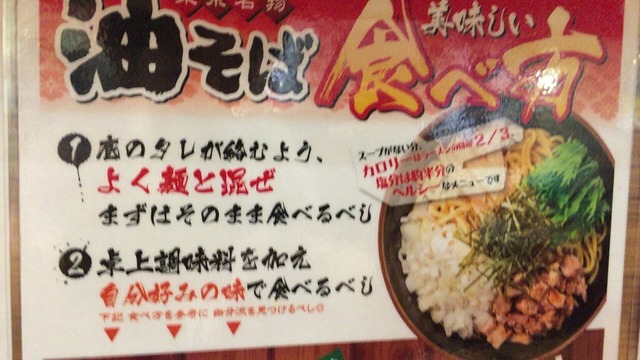 東京名物
油そば
美味しい
食べ方
1 底のタレが絡むよう、
よく麺と混ぜ
まずはそのまま食べるべし
スープがない分、
カロリーはラーメンの約2/3、
塩分は約半分の
ヘルシーなメニューです
2 卓上調味料を加え
自分好みの味で食べるべし
下記 食べ方を参考に 自分流を見つけるべし◎